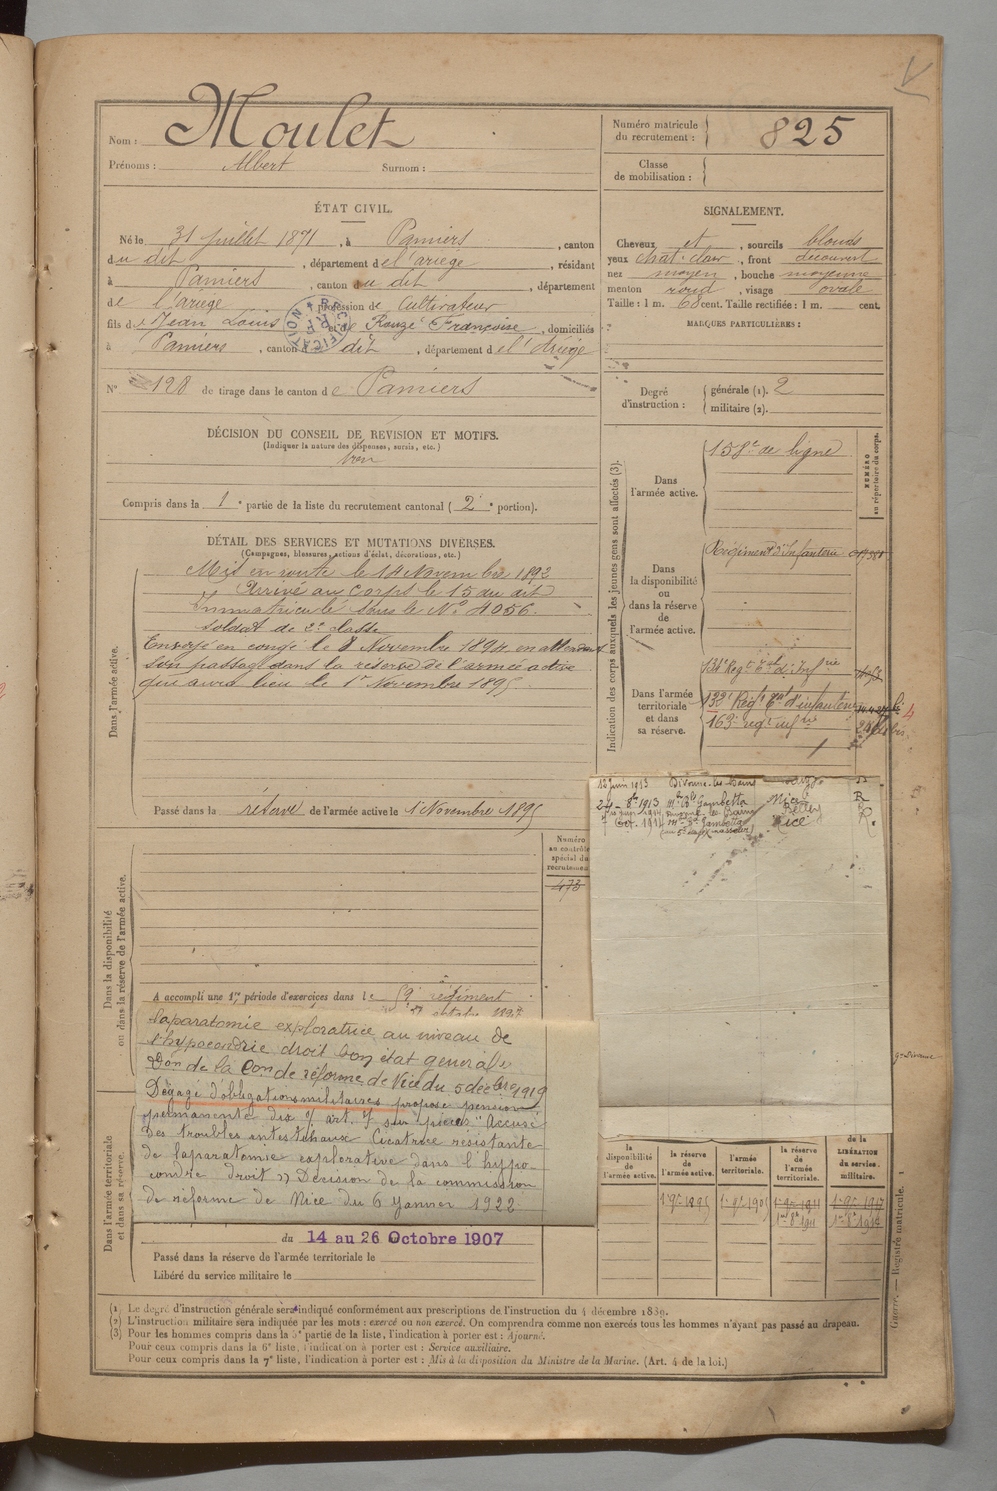 Nom : Moulet
Prénoms : Albert Surnom :
Numéro matricule du recrutement : 825
Classe de mobilisation :
ÉTAT CIVIL.
Né le 31 juillet 1871, à Pamiers, canton
du dit, département de l'ariège, résidant
à Pamiers, canton du dit, département
de l'ariège, profession de Cultivateur
fils de Jean Louis et de Rouzé Françoise, domiciliés
à Pamiers, canton dit, département de l'Ariège
RECTIFICATION
N° 128 de tirage dans le canton de Pamiers
SIGNALEMENT.
Cheveux et, sourcils blonds
yeux chat. clair, front découvert
nez moyen, bouche moyenne
menton rond, visage ovale
Taille : 1 m. 68 cent. Taille rectifiée : 1 m. cent.
MARQUES PARTICULIÈRES :
Degré d'instruction : générale (1). 2
militaire (2).
DÉCISION DU CONSEIL DE RÉVISION ET MOTIFS.
(Indiquer la nature des dispenses, sursis, etc.)
bon
Compris dans la 1e partie de la liste du recrutement cantonal (2e portion).
DÉTAIL DES SERVICES ET MUTATIONS DIVERSES.
(Campagnes, blessures, actions d'éclat, décorations, etc.)
Dans l'armée active.
Mis en route le 14 Novembre 1892
Arrivé au corps le 15 du dit
Immatriculé sous le N° 4056.
soldat de 2e classe
Envoyé en congé le 8 Novembre 1894 en attendant
son passage dans la réserve de l'armée active
qui aura lieu le 1er Novembre 1895
Passé dans la réserve de l'armée active le 1er Novembre 1895
Indication des corps auxquels les jeunes gens sont affectés (3).
NUMÉRO au répertoire du corps.
Dans l'armée active.
158e de ligne
Dans la disponibilité ou dans la réserve de l'armée active.
Régiment d'Infanterie
Dans l'armée territoriale et dans sa réserve.
134e Régt Tal d'Infrie
132e Régt Tal d'infanterie
163e regt infrie
12 Juin 1913 Divonne-les-Bains
24 - 8bre 1913 Bd Gambetta Nice R
Oct. 1914 Bd Gambetta Nice R.
Dans la disponibilité ou dans la réserve de l'armée active.
Numéro au contrôle spécial du recrutement
473
A accompli une 1re période d'exercices dans le 59e régiment
laparatomie exploratrice au niveau de
l'hypocondrie droit bon état général
Don de la Con de réforme de Nice du 5 décbre 1919
Dégagé d'obligations militaires propose pension
permanente dix % art. 7 sur pièces "Accuse
des troubles intestinaux Cicatrice résistante
de laparatomie explorative dans l'hypo-
condre droit" Décision de la commission
de réforme de Nice du 6 Janvier 1922
Dans l'armée territoriale et dans sa réserve.
du 14 au 26 Octobre 1907
Passé dans la réserve de l'armée territoriale le
Libéré du service militaire le
la disponibilité de l'armée active.
la réserve de l'armée active.
l'armée territoriale.
la réserve de l'armée territoriale.
de la LIBÉRATION du service militaire.
1er 9bre 1895 1er 8bre 1905 1er 9bre 1911 1er 9bre 1917
1er 8bre 1911
(1) Le degré d'instruction générale sera indiqué conformément aux prescriptions de l'instruction du 4 décembre 1889.
(2) L'instruction militaire sera indiquée par les mots : exercé ou non exercé. On comprendra comme non exercés tous les hommes n'ayant pas passé au drapeau.
(3) Pour les hommes compris dans la 5e partie de la liste, l'indication à porter est : Ajourné.
Pour ceux compris dans la 6e liste, l'indication à porter est : Service auxiliaire.
Pour ceux compris dans la 7e liste, l'indication à porter est : Mis à la disposition du Ministre de la Marine. (Art. 4 de la loi.)
Guerre. — Registre matricule. 1